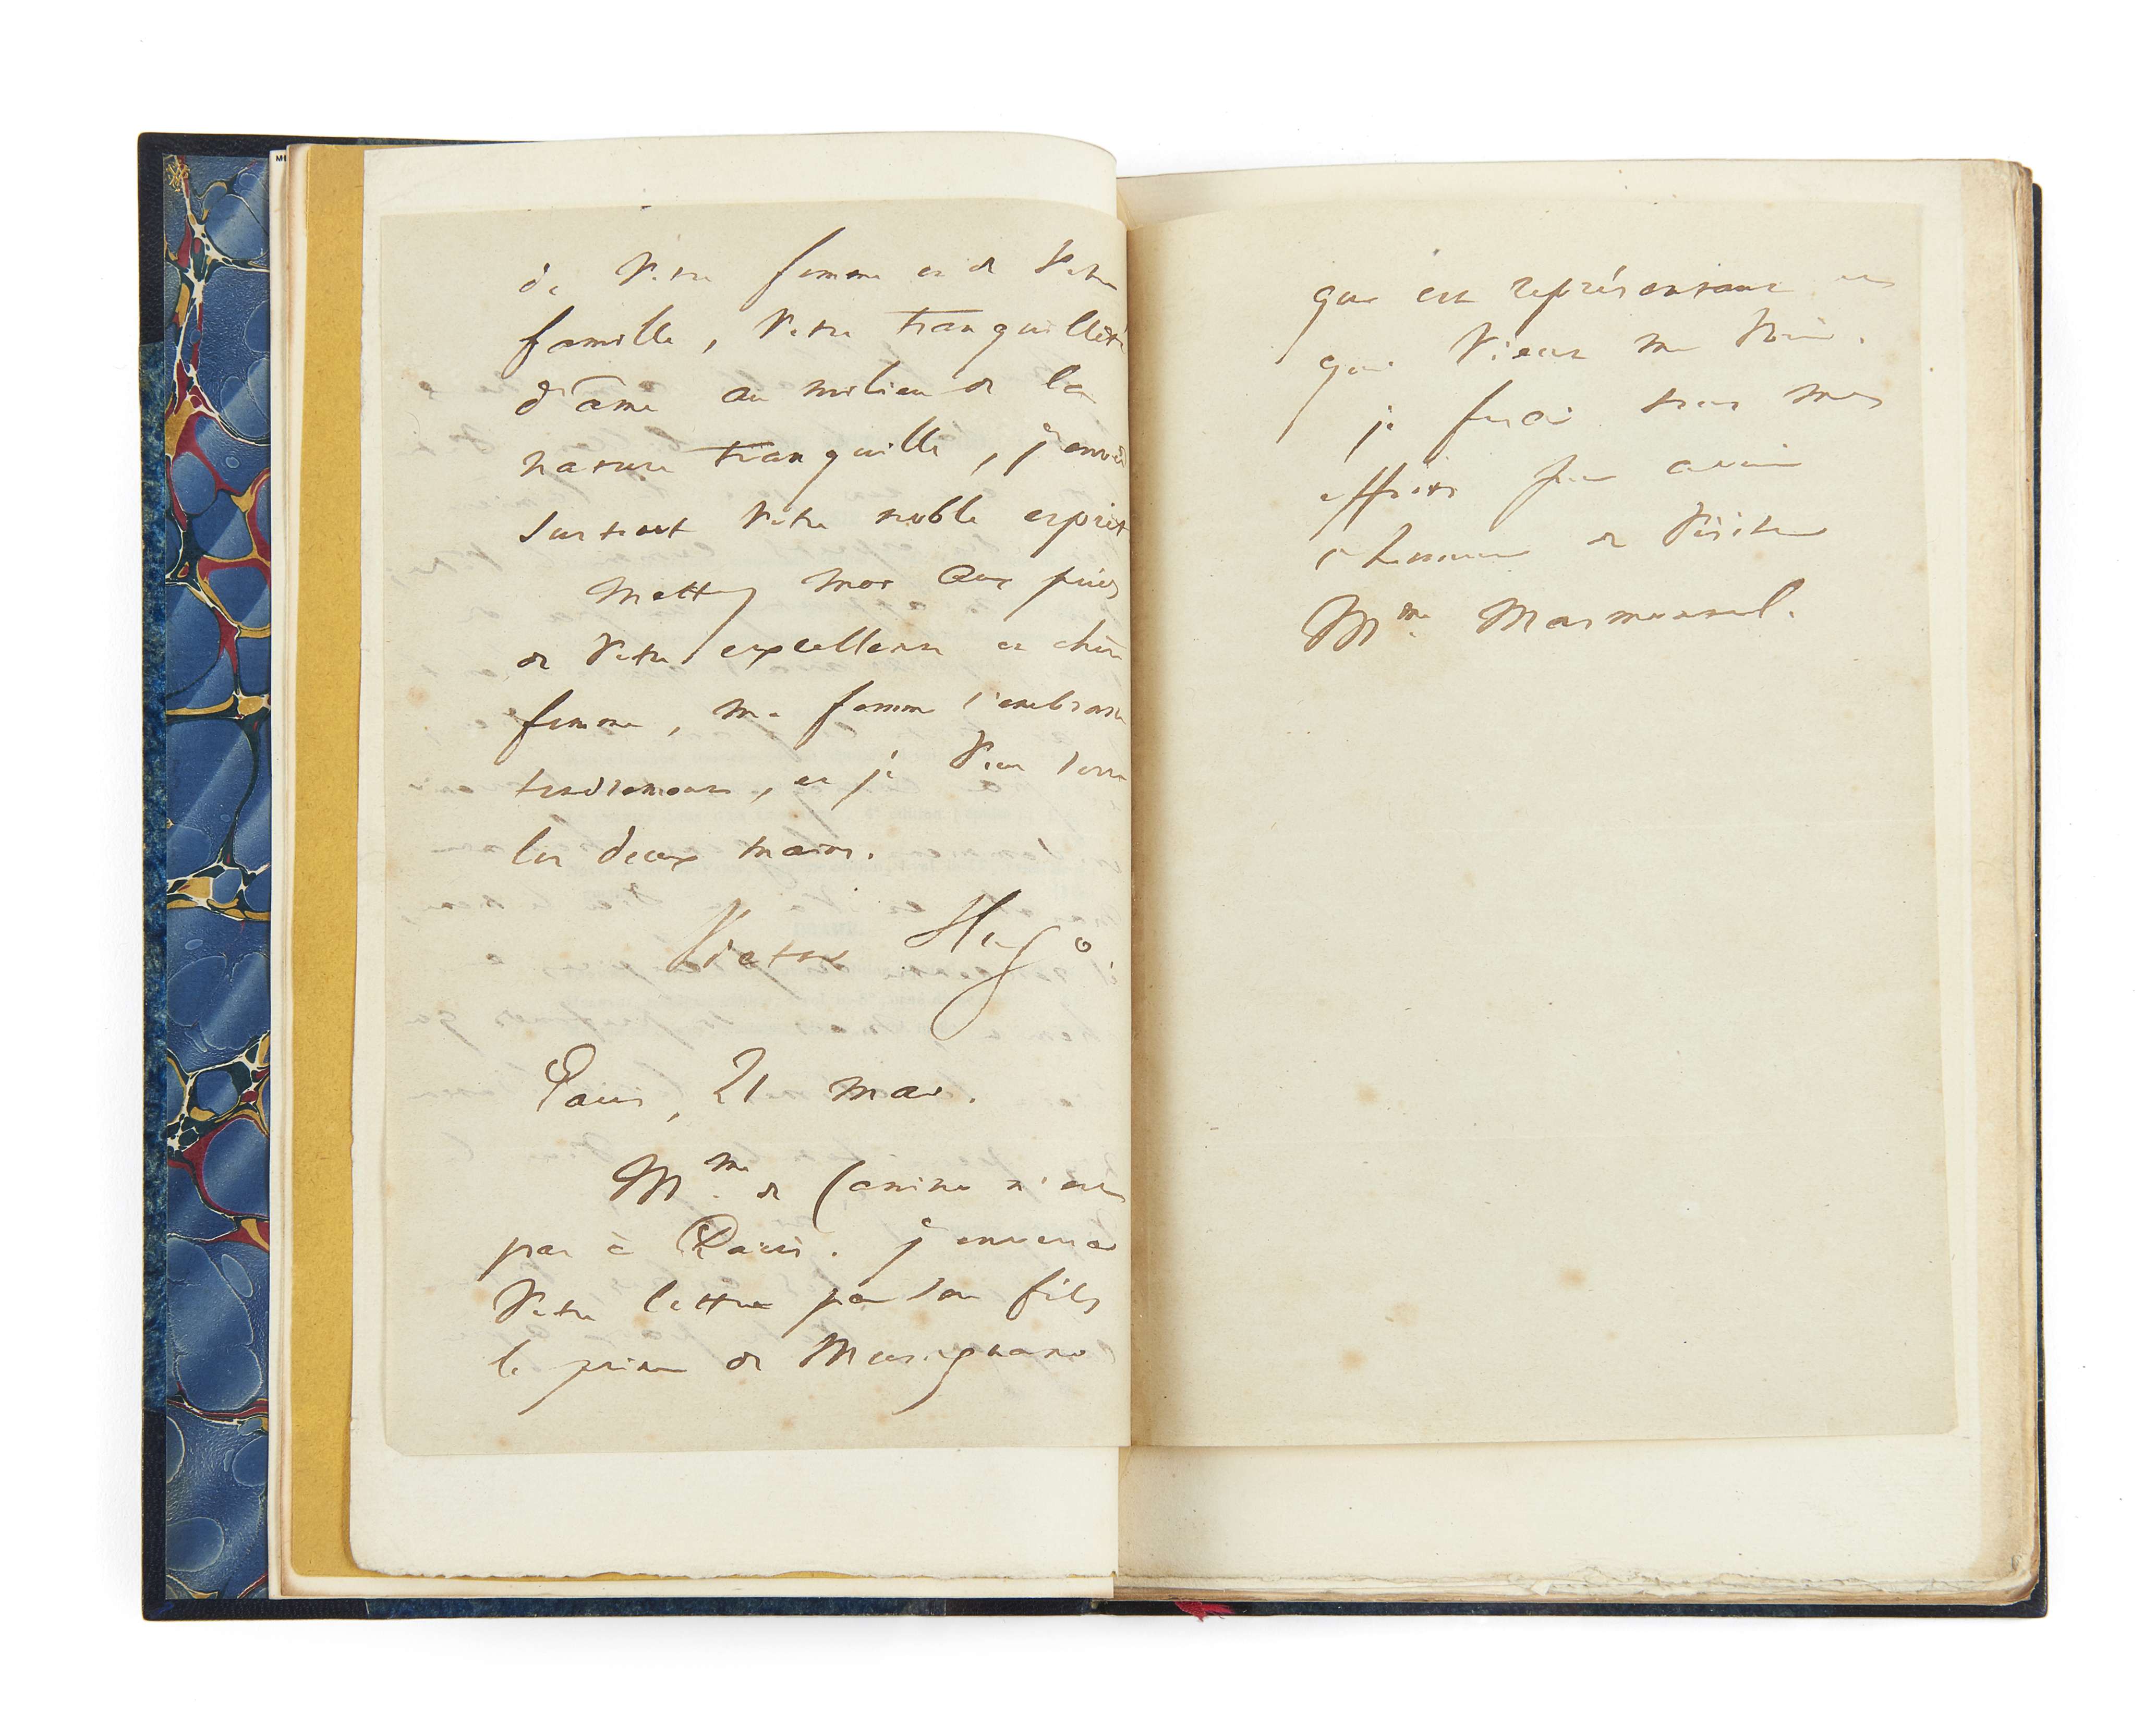 de votre femme et de votre
famille, votre tranquillité
d'âme au milieu de la
nature tranquille, j'envie
surtout votre noble esprit
Mettez moi aux pieds
de votre excellente et chère
femme, ma femme l'embrasse
tendrement, et je vous serre
les deux mains.
Victor Hugo
Paris, 21 mai.
Mme de Canino n'est
pas à Paris. j'enverrai
votre lettre par son fils
le prince de Musignano
qui est représentant et
qui vient me voir.
je ferai tous mes
efforts pour avoir
l'honneur de visiter
Mme Marmonnel.